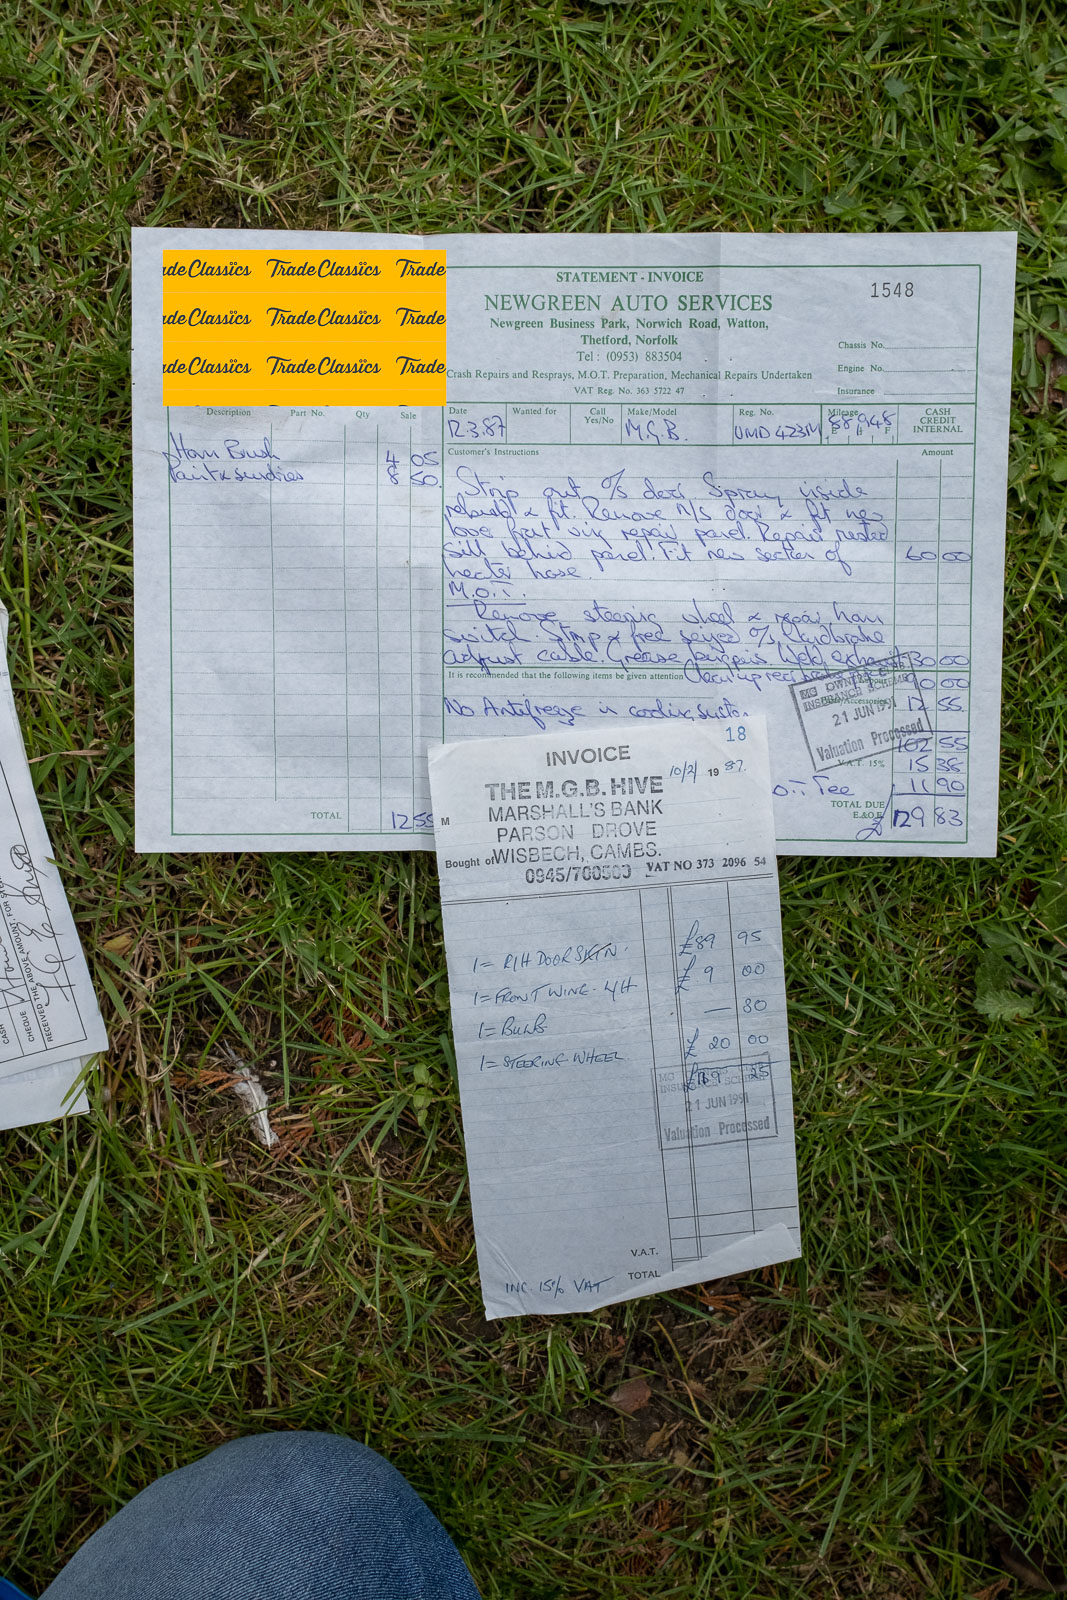 adeClassics TradeClassics Trade
adeClassics TradeClassics Trade
adeClassics TradeClassics Trade
STATEMENT - INVOICE
1548
NEWGREEN AUTO SERVICES
Newgreen Business Park, Norwich Road, Watton,
Thetford, Norfolk
Tel: (0953) 883504
Crash Repairs and Resprays, M.O.T. Preparation, Mechanical Repairs Undertaken
VAT Reg. No. 363 5722 47
Chassis No.
Engine No.
Insurance
Description Part No. Qty Sale
Date Wanted for Call Yes/No Make/Model Reg. No. Mileage CASH CREDIT INTERNAL
12.3.87 M.G.B. UMD 423M 88948
Customer's Instructions Amount
Horn Brush 4 05
Paint & sundries 8 50
TOTAL 12 55
Strip out O/S door. Spray inside
rebuild & fit. Remove N/S door & fit new
lower front wing repair panel. Repair rusted
sill behind panel. Fit new section of 60 00
heater hose.
M.O.T.
Remove steering wheel & repair horn
switch. Strip & free seized O/S handbrake
adjust cable. Grease Weld exhaust 30 00
It is recommended that the following items be given attention Clean up rear 90 00
No Antifreeze in cooling system.
12 55
102 55
V.A.T. 15% 15 38
Fee 11 90
TOTAL DUE
E.&O.E. £ 129 83
MG OWNERS CLUB
INSURANCE SCHEME
21 JUN 1991
Valuation Processed
18
INVOICE
10/2/ 1987.
THE M.G.B. HIVE
M MARSHALL'S BANK
PARSON DROVE
Bought of WISBECH, CAMBS.
0945/700500 VAT NO 373 2096 54
1= R/H DOOR SKIN. £89 95
1= FRONT WING - L/H £9 00
1= BULB - 30
1= STEERING WHEEL £20 00
£119 25
MG
INSURANCE SCHEME
21 JUN 1991
Valuation Processed
V.A.T.
TOTAL
INC. 15% VAT
CASH
CHEQUE
RECEIVED THE ABOVE AMOUNT, FOR